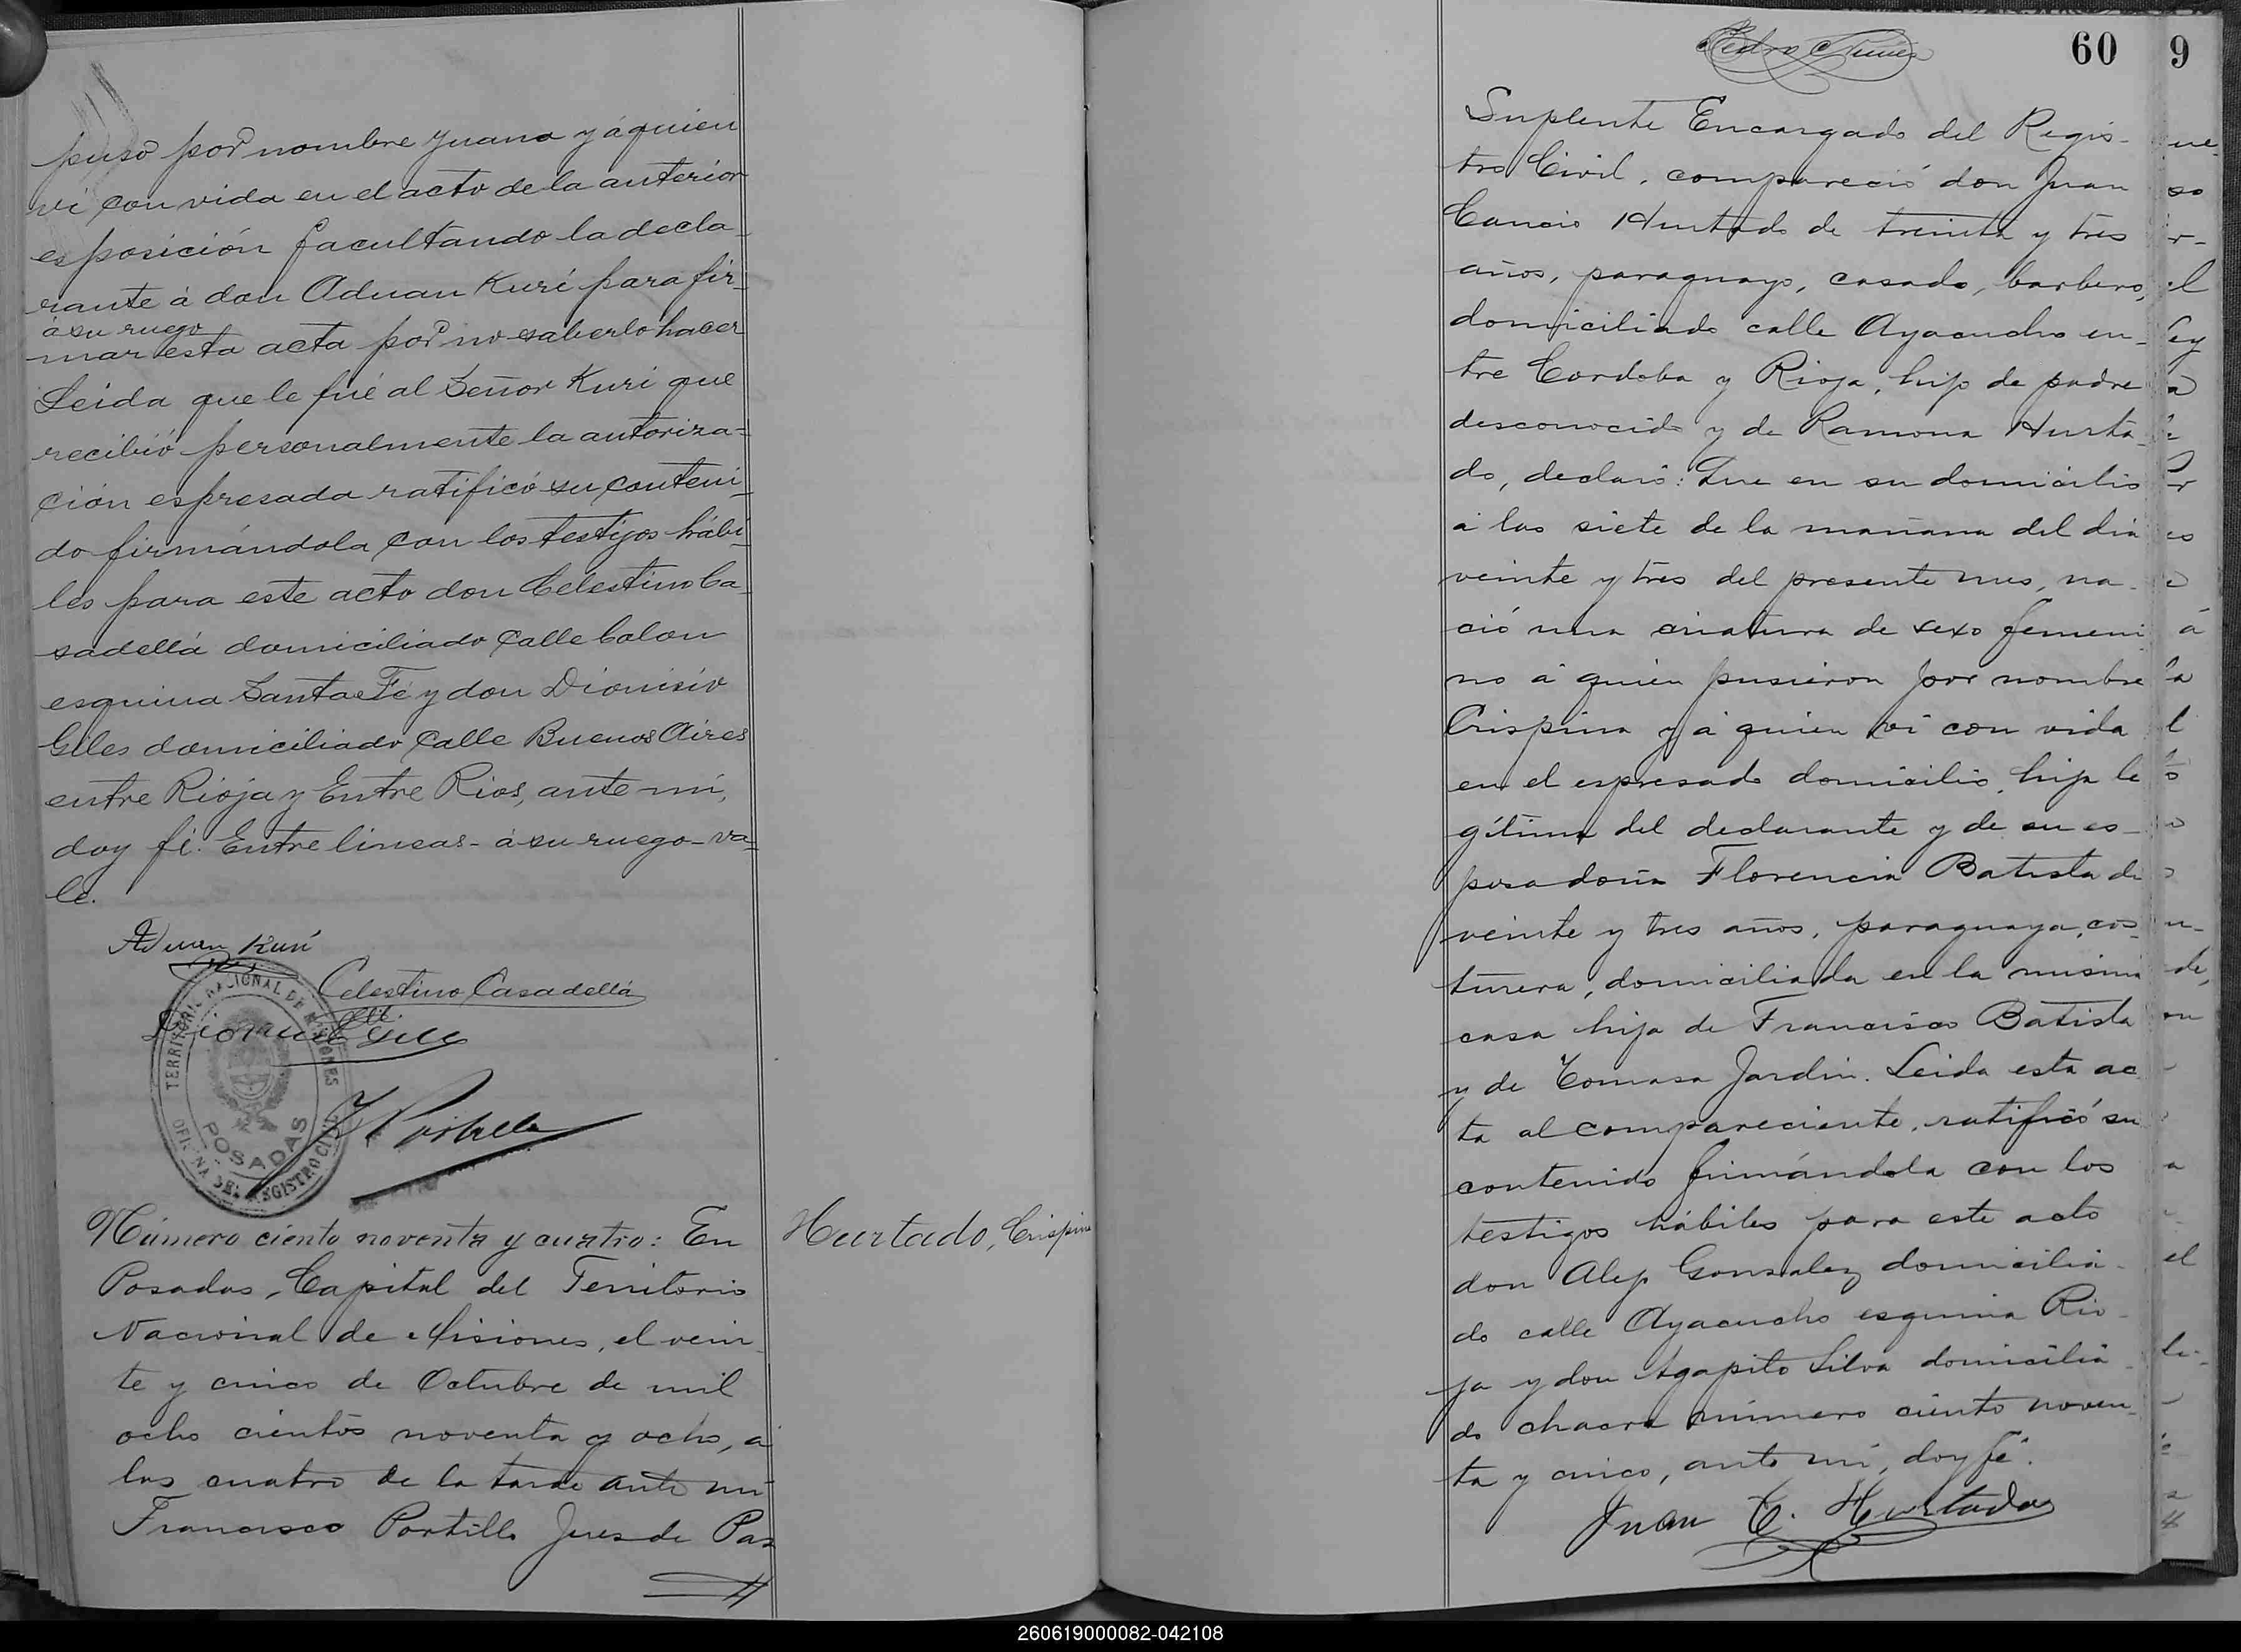 puso por nombre Juana y á quien
vi con vida en el acto de la anterior
esposición facultando la decla-
rante á don Aduan Kuri para fir-
á su ruego
mar esta acta por no saberlo hacer
Leida que le fué al Señor Kuri que
recibió personalmente la autoriza-
ción espresada ratificó su conteni-
do firmándola con los testigos hábi-
les para este acto don Celestino Ca-
sadellá domiciliado calle Colon
esquina Santa Fé y don Dionisio
Giles domiciliado calle Buenos Aires
entre Rioja y Entre Rios, ante mí,
doy fé. Entre lineas - á su ruego - va-
le.
Aduan Kuri
Celestino Casadellá
TERRITORIO NACIONAL DE MISIONES
POSADAS
OFICINA DEL REGISTRO CIVIL
F Portillo
Número ciento noventa y cuatro: En
Posadas, Capital del Territorio
Nacional de Misiones, el vein-
te y cinco de Octubre de mil
ocho cientos noventa y ocho, á
las cuatro de la tarde ante mi
Francisco Portillo Jues de Paz
Hurtado, Crispina
Pedro Nuñez
60
9
Suplente Encargado del Regis-
tro Civil, compareció don Juan
Cancio Hurtado de treinta y tres
años, paraguayo, casado, barbero,
domiciliado calle Ayacucho en-
tre Cordoba y Rioja, hijo de padre
desconocido y de Ramona Hurta-
do, declaró: Que en su domicilio
á las siete de la mañana del dia
veinte y tres del presente mes, na-
ció una criatura de sexo femeni
no á quien pusieron por nombre
Crispina y á quien vi con vida
en el espresado domicilio, hija le
gítima del declarante y de su es-
posa doña Florencia Batista de
veinte y tres años, paraguaya, cos-
turera, domiciliada en la misma
casa hija de Francisco Batista
y de Tomasa Jardin. Leida esta ac
ta al compareciente, ratificó su
contenido firmándola con los
testigos hábiles para este acto
don Alejo Gonzalez domicilia-
do calle Ayacucho esquina Rio-
ja y don Agapito Silva domicilia-
do chacra número ciento noven-
ta y cinco, ante mí, doy fé.
Juan C. Hurtado
260619000082-042108